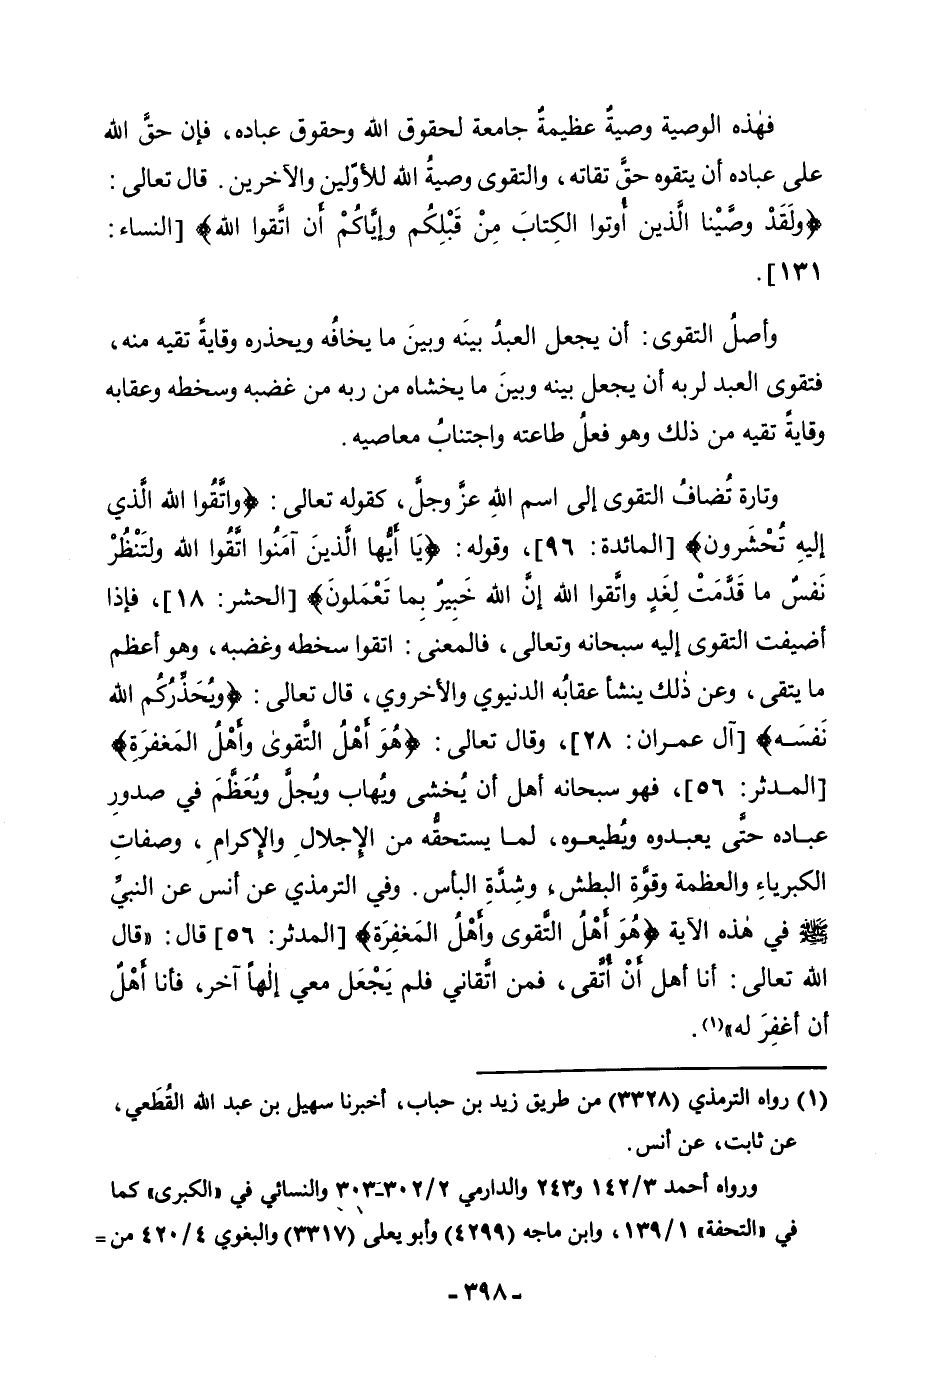 فهٰذه الوصية وصيةٌ عظيمةٌ جامعة لحقوق الله وحقوق عباده، فإن حقَّ الله
على عباده أن يتقوه حقَّ تقاته، والتقوى وصيةُ الله للأوّلين والآخرين. قال تعالى:
﴿ولَقَدْ وصَّيْنا الَّذين أُوتوا الكِتابَ مِنْ قَبْلِكُم وإيَّاكُمْ أَن اتَّقوا الله﴾ [النساء:
١٣١].
وأصلُ التقوى: أن يجعل العبدُ بينَه وبينَ ما يخافُه ويحذره وقايةً تقيه منه،
فتقوى العبد لربه أن يجعل بينه وبينَ ما يخشاه من ربه من غضبه وسخطه وعقابه
وقايةً تقيه من ذلك وهو فعلُ طاعته واجتنابُ معاصيه.
وتارة تُضافُ التقوى إلى اسم اللهِ عزَّ وجلَّ، كقوله تعالى: ﴿واتَّقُوا الله الَّذي
إليهِ تُحْشَرون﴾ [المائدة: ٩٦]، وقوله: ﴿يَا أَيُّها الَّذينَ آمَنُوا اتَّقُوا الله ولتَنْظُرْ
نَفسٌ ما قَدَّمَتْ لِغَدٍ واتَّقوا الله إنَّ الله خَبِيرٌ بِما تَعْمَلونَ﴾ [الحشر: ١٨]، فإذا
أضيفت التقوى إليه سبحانه وتعالى، فالمعنى: اتقوا سخطه وغضبه، وهو أعظم
ما يتقى، وعن ذٰلك ينشأ عقابُه الدنيوي والأخروي، قال تعالى: ﴿ويُحَذِّرُكُم الله
نَفسَه﴾ [آل عمران: ٢٨]، وقال تعالى: ﴿هُوَ أَهْلُ التَّقوىٰ وأَهْلُ المَغفرَةِ﴾
[المدثر: ٥٦]، فهو سبحانه أهل أن يُخشى ويُهاب ويُجلَّ ويُعَظَّمَ في صدورِ
عباده حتَّى يعبدوه ويُطيعوه، لما يستحقُّه من الإجلالِ والإكرامِ، وصفاتِ
الكبرياءِ والعظمة وقوَّةِ البطش، وشِدَّةِ البأس. وفي الترمذي عن أنس عن النبيِّ
ﷺ في هٰذه الآية ﴿هُوَ أَهْلُ التَّقوى وأَهْلُ المَغفِرَة﴾ [المدثر: ٥٦] قال: «قال
الله تعالى: أنا أهل أَنْ أُتَّقى، فمن اتَّقاني فلم يَجْعَل معي إلٰهاً آخر، فأنا أَهْلٌ
أن أغفِرَ له»(١).
(١) رواه الترمذي (٣٣٢٨) من طريق زيد بن حباب، أخبرنا سهيل بن عبد الله القُطَعي،
عن ثابت، عن أنس.
ورواه أحمد ١٤٢/٣ و٢٤٣ والدارمي ٣٠٢/٢-٣٠٣ والنسائي في «الكبرى» كما
في «التحفة» ١٣٩/١، وابن ماجه (٤٢٩٩) وأبو يعلى (٣٣١٧) والبغوي ٤٢٠/٤ من=
- ٣٩٨ -